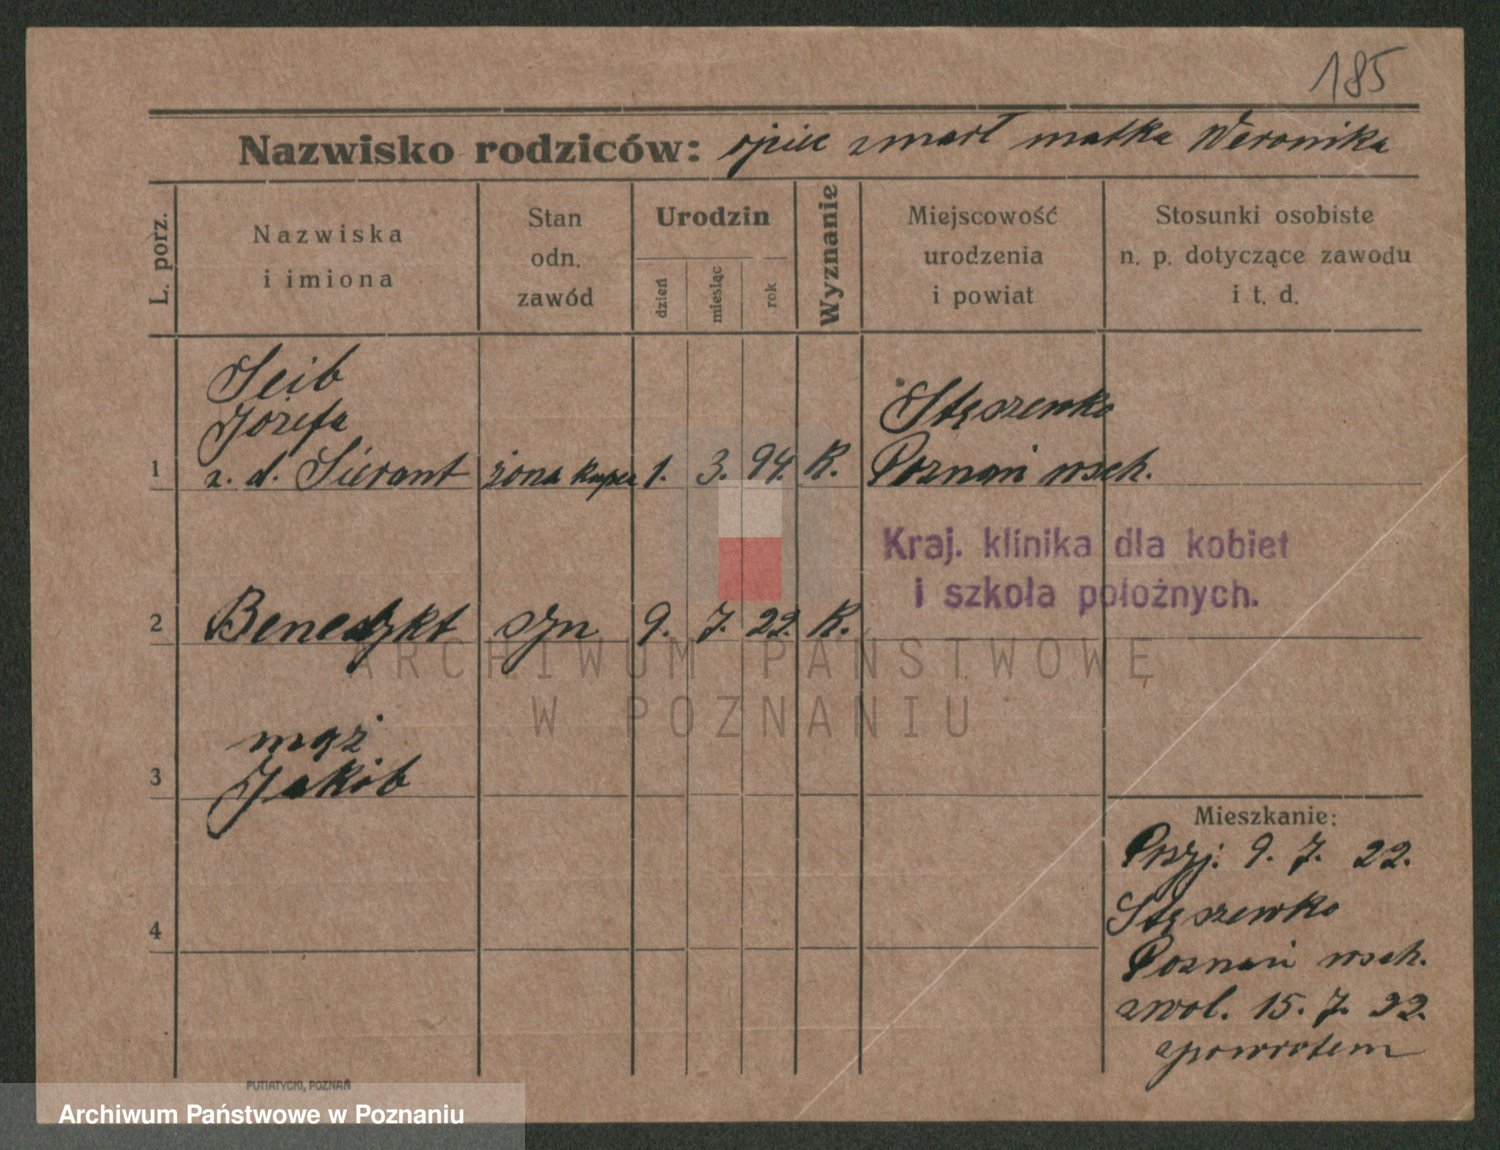 185
Nazwisko rodziców: ojciec zmarł matka Weronika
L. porz.
Nazwiska
i imiona
Stan
odn.
zawód
Urodzin
dzień
miesiąc
rok
Wyznanie
Miejscowość
urodzenia
i powiat
Stosunki osobiste
n. p. dotyczące zawodu
i t. d.
Seib
Józefa
1 z. d. Sierant żona kupca 1. 3. 94. K.
Stęszewko
Poznań wsch.
Kraj. klinika dla kobiet
i szkoła położnych.
2 Benedykt syn 9. 7. 22. K.
ARCHIWUM PAŃSTWOWE
W POZNANIU
mąż
3 Jakób
4
Mieszkanie:
Przyj: 9. 7. 22.
Stęszewko
Poznań wsch.
zwol. 15. 7. 22.
zpowrotem
PUTIATYCKI, POZNAŃ
Archiwum Państwowe w Poznaniu